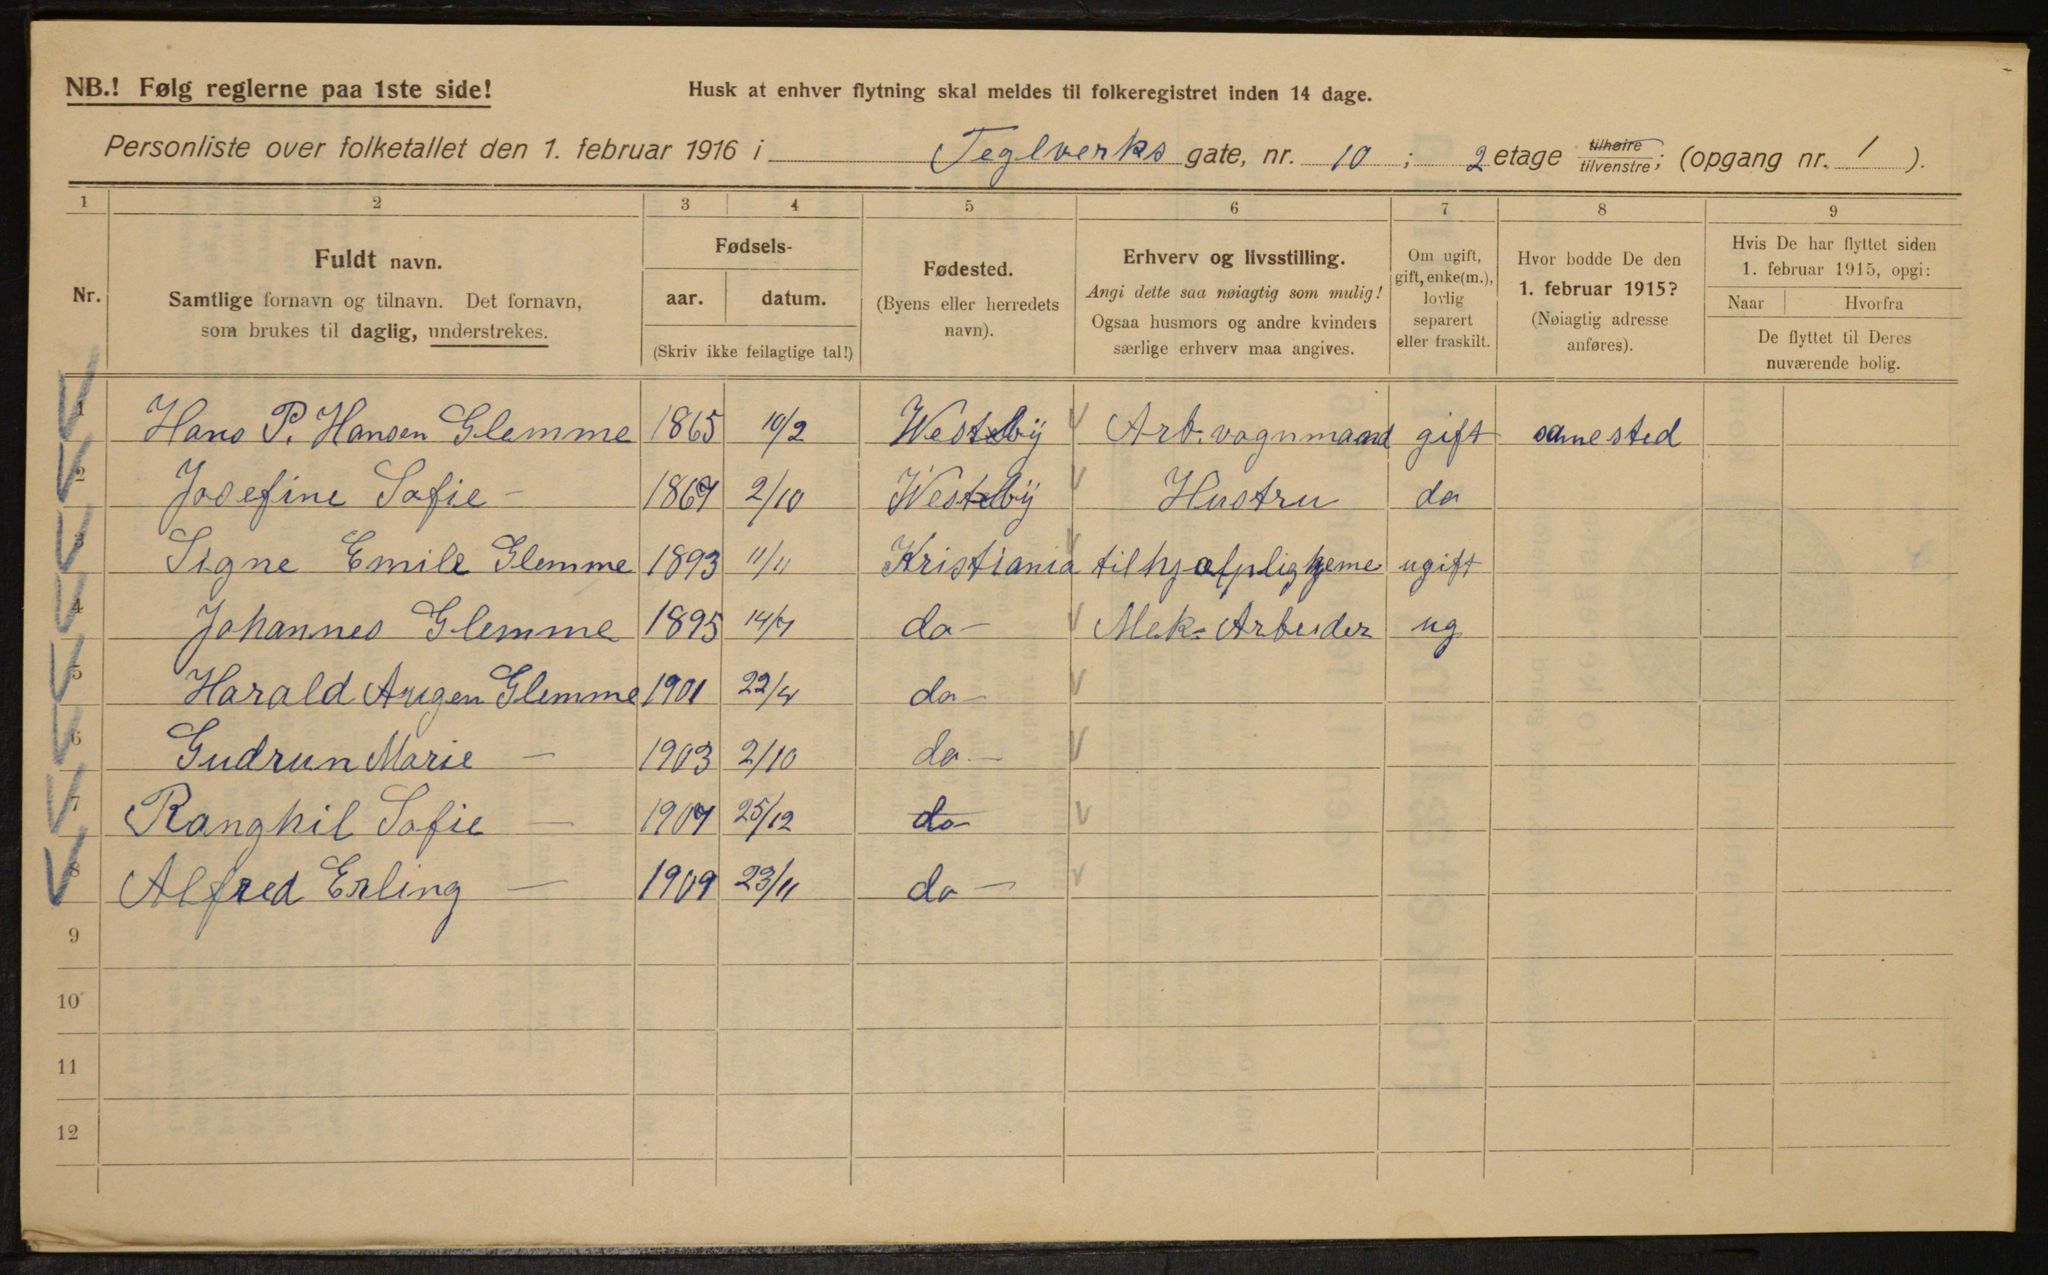 NB.! Følg reglerne paa 1ste side!
Husk at enhver flytning skal meldes til folkeregistret inden 14 dage.
Personliste over folketallet den 1. februar 1916 i Teglverks gate, nr. 10; 2 etage tilhøire/tilvenstre; (opgang nr. 1).
1 2 3 4 5 6 7 8 9
Nr.
Fuldt navn.
Samtlige fornavn og tilnavn. Det fornavn,
som brukes til daglig, understrekes.
Fødsels-
aar. datum.
(Skriv ikke feilagtige tal!)
Fødested.
(Byens eller herredets
navn).
Erhverv og livsstilling.
Angi dette saa nøiagtig som mulig!
Ogsaa husmors og andre kvinders
særlige erhverv maa angives.
Om ugift,
gift, enke(m.),
lovlig
separert
eller fraskilt.
Hvor bodde De den
1. februar 1915?
(Nøiagtig adresse
anføres).
Hvis De har flyttet siden
1. februar 1915, opgi:
Naar Hvorfra
De flyttet til Deres
nuværende bolig.
1 Hans P. Hansen Glemme 1865 10/2 Westby Arb. vognmand gift samested
2 Josefine Sofie - 1867 2/10 Westby Hustru do
3 Signe Emile Glemme 1893 11/11 Kristiania ugift
4 Johannes Glemme 1895 do - Mek. Arbeider ug
5 Harald Augen Glemme 1901 22/4 do -
6 Gudrun Marie - 1903 2/10 do -
7 Ranghil Sofie - 1907 25/12 do -
8 Alfred Erling - 1909 23/11 do -
9
10
11
12